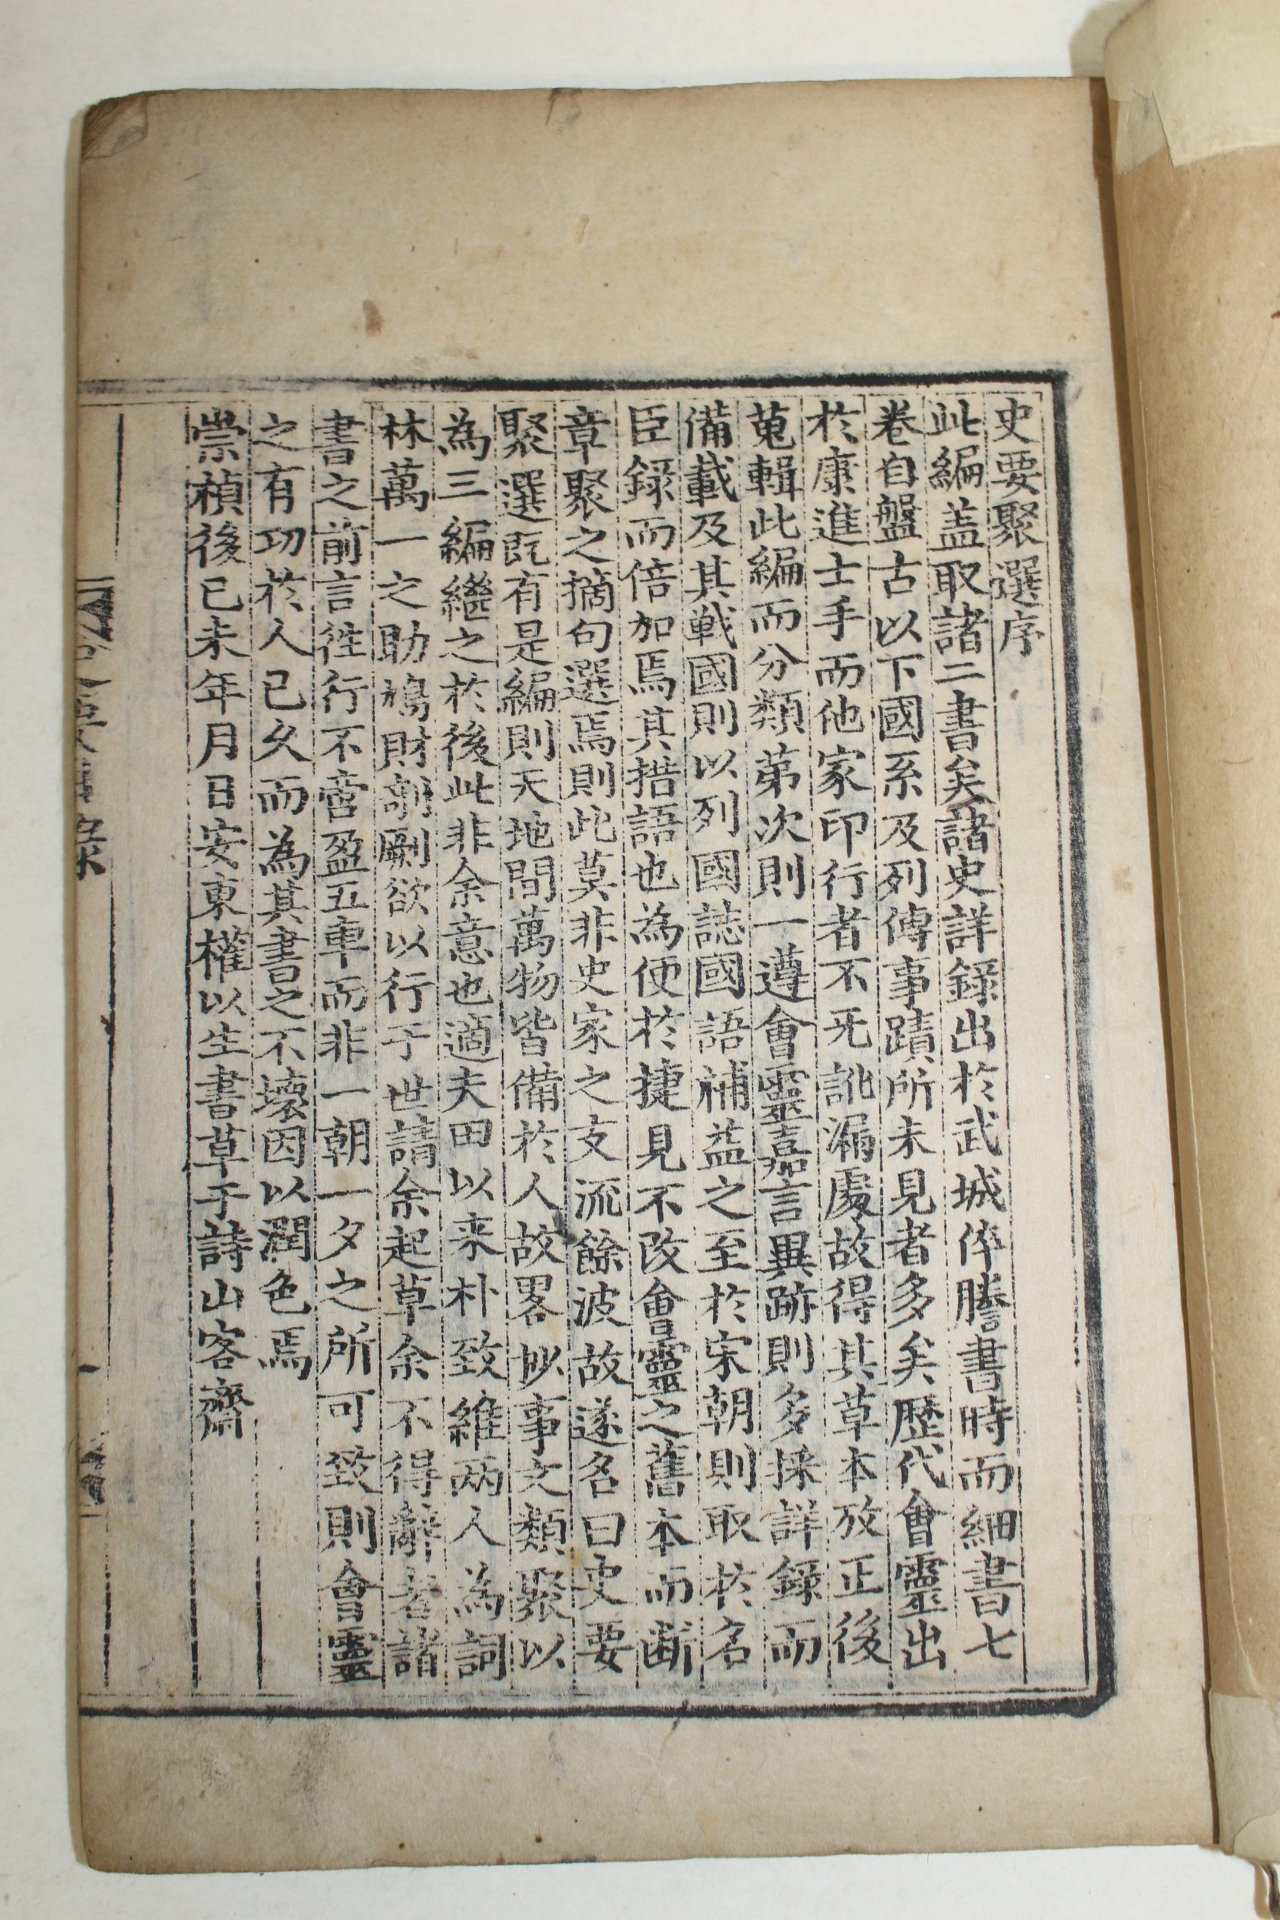 史要聚選序
此編盖取諸二書矣諸史詳錄出於武城倅謄書時而細書七
卷自盤古以下國系及列傳事蹟所未見者多矣歷代會靈出
於康進士手而他家印行者不无訛漏處故得其草本攷正後
蒐輯此編而分類第次則一遵會靈嘉言異跡則多採詳錄而
備載及其戰國則以列國誌國語補益之至於宋朝則取於名
臣錄而倍加焉其措語也為便於捷見不改會靈之舊本而断
章聚之摘句選焉則此莫非史家之支流餘波故遂名曰史要
聚選旣有是編則天地間萬物皆備於人故畧抄事文類聚以
為三編繼之於後此非余意也適夫田以来朴致維兩人為詞
林萬一之助鳩財剞劂欲以行于世請余起草余不得辭者諸
書之前言徃行不啻盈五車而非一朝一夕之所可致則會靈
之有功於人已久而為其書之不壞因以潤色焉
崇禎後已未年月日安東權以生書草于詩山客齋